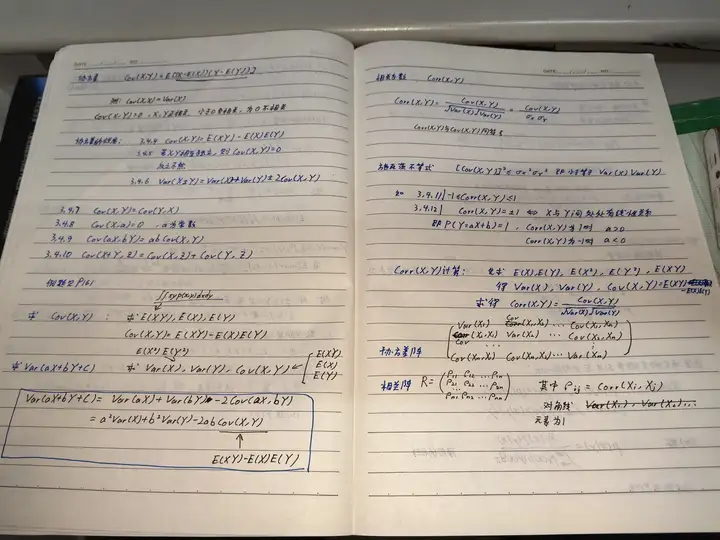 协方差 Cov(X,Y)=E[(X-E(X))(Y-E(Y))]
则: Cov(X,X)=Var(X)
Cov(X,Y)>0, X,Y正相关, 小于0负相关, 为0不相关
协方差的性质: 3.4.4 Cov(X,Y)=E(XY)-E(X)E(Y)
3.4.5 若X,Y相互独立, 则Cov(X,Y)=0
反之不然
3.4.6 Var(X±Y)=Var(X)+Var(Y)±2Cov(X,Y)
3.4.7 Cov(X,Y)=Cov(Y,X)
3.4.8 Cov(X,a)=0 , a为常数
3.4.9 Cov(aX,bY)=abCov(X,Y)
3.4.10 Cov(X+Y,Z)=Cov(X,Z)+Cov(Y,Z)
例题见P161
∬xyp(x,y)dxdy
求 Cov(X,Y): 求E(XY),E(X),E(Y)
Cov(X,Y)=E(XY)-E(X)E(Y)
E(X²) E(Y²)
求Var(aX+bY+C) 求Var(X),Var(Y),Cov(X,Y) ← E(XY)
E(X)
E(Y)
Var(aX+bY+C)= Var(aX)+Var(bY) -2Cov(aX,bY)
= a²Var(X)+b²Var(Y)-2abCov(X,Y)
↑
E(XY)-E(X)E(Y)
相关系数 Corr(X,Y)
Corr(X,Y)= Cov(X,Y)/√Var(X)√Var(Y) = Cov(X,Y)/σxσY
Corr(X,Y)与Cov(X,Y)同符号
[Cov(X,Y)]²≤σx²σY² 即小于等于Var(X)Var(Y)
3.4.11| -1≤Corr(X,Y)≤1
3.4.12| Corr(X,Y)=±1 ⇔ X与Y间处处有线性关系
即P(Y=aX+b)=1, Corr(X,Y)为1时 a>0
Corr(X,Y)为-1时 a<0
Corr(X,Y)计算: 先求 E(X),E(Y), E(X²), E(Y²), E(XY)
得 Var(X), Var(Y), Cov(X,Y)=E(XY)
-E(X)E(Y)
求得 Corr(X,Y)= Cov(X,Y)/√Var(X)√Var(Y)
Var(X₁) Cov(X₁,X₂) ... Cov(X₁,Xn)
Cov(X₂,X₁) Var(X₂) ... Cov(X₂,Xn)
⋮ ⋮ ⋮
协方差阵 Cov(Xn,X₁) Cov(Xn,X₂) ... Var(Xn)
相关阵 R= (ρ₁₁ ρ₁₂ ... ρ₁n
ρ₂₁ ρ₂₂ ... ρ₂n
ρn₁ ρn₂ ... ρnn) 其中 ρij = Corr(Xi,Xj)
对角线 Var(X₁), Var(X₂)...
元素为1